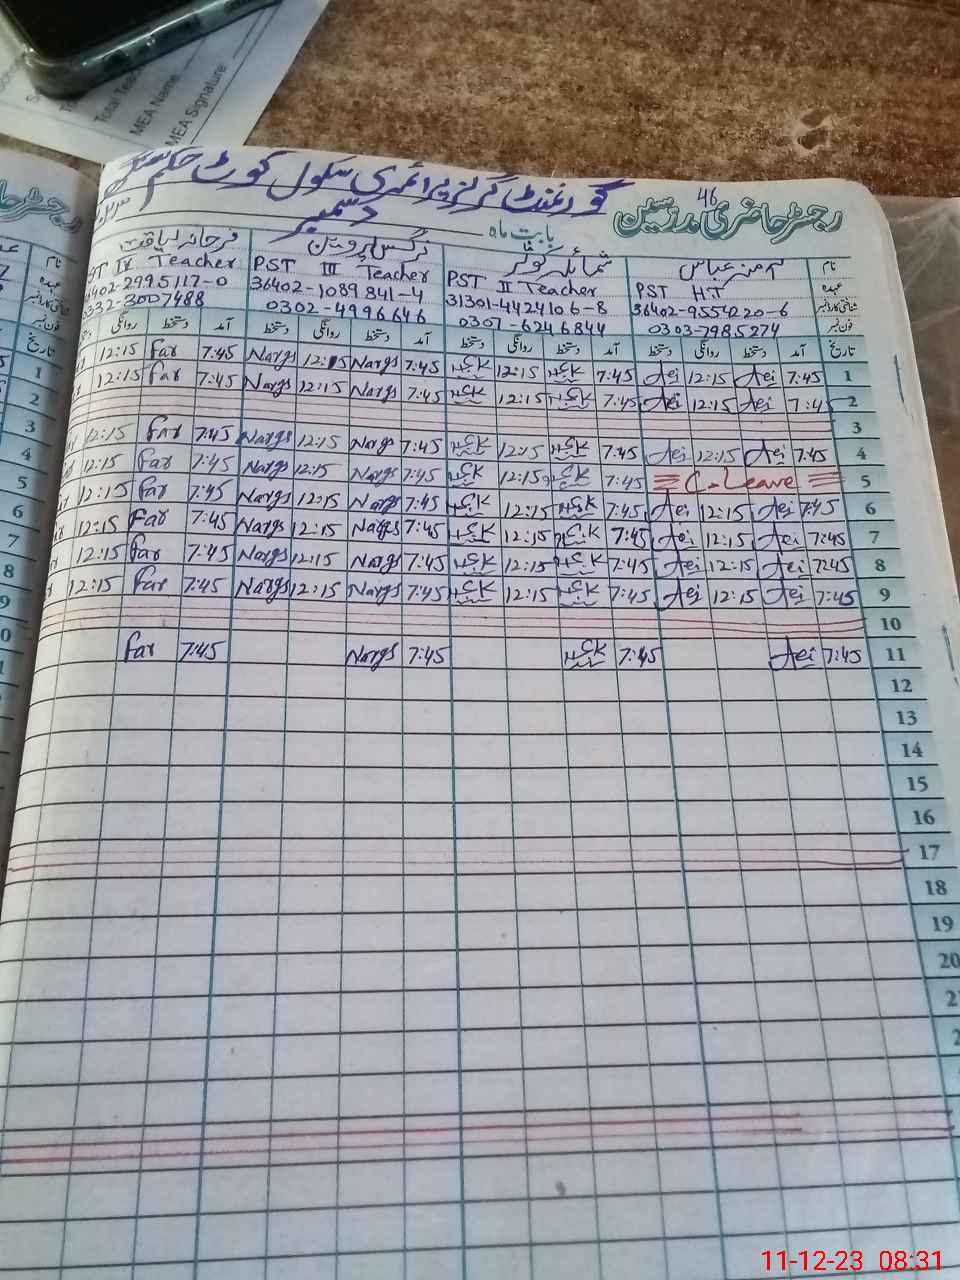 Total Teac
MEA Name
MEA Signature
46
رجسٹر حاضری مدرسین
گورنمنٹ گرلز پرائمری سکول کوٹ حکم
بابت ماہ دسمبر
نام آمنہ عباس شمائلہ کوثر نرگس پروین فرحانہ لیاقت
عہدہ PST HT PST II Teacher PST III Teacher PST IV Teacher
شناختی کارڈ نمبر 36402-9554220-6 31301-4424106-8 36402-1089841-4 36402-2995117-0
فون نمبر 0303-7985274 0307-6246844 0302-4996646 0332-3007488
تاریخ آمد دستخط روانگی دستخط آمد دستخط روانگی دستخط آمد دستخط روانگی دستخط آمد دستخط روانگی
1 7:45 Aei 12:15 Aei 7:45 12:15 7:45 Nargs 12:15 Nargs 7:45 Far 12:15
2 7:45 Aei 12:15 Aei 7:45 12:15 7:45 Nargs 12:15 Nargs 7:45 Far 12:15
3
4 7:45 Aei 12:15 Aei 7:45 12:15 7:45 Nargs 12:15 Nargs 7:45 Far 12:15
5 C-Leave 7:45 12:15 7:45 Nargs 12:15 Nargs 7:45 Far 12:15
6 7:45 Aei 12:15 Aei 7:45 12:15 7:45 Nargs 12:15 Nargs 7:45 Far 12:15
7 7:45 Aei 12:15 Aei 7:45 12:15 7:45 Nargs 12:15 Nargs 7:45 Far 12:15
8 7:45 Aei 12:15 Aei 7:45 12:15 7:45 Nargs 12:15 Nargs 7:45 Far 12:15
9 7:45 Aei 12:15 Aei 7:45 12:15 7:45 Nargs 12:15 Nargs 7:45 Far 12:15
10
11 7:45 Aei 7:45 7:45 Nargs 7:45 Far
12
13
14
15
16
17
18
19
20
11-12-23 08:31